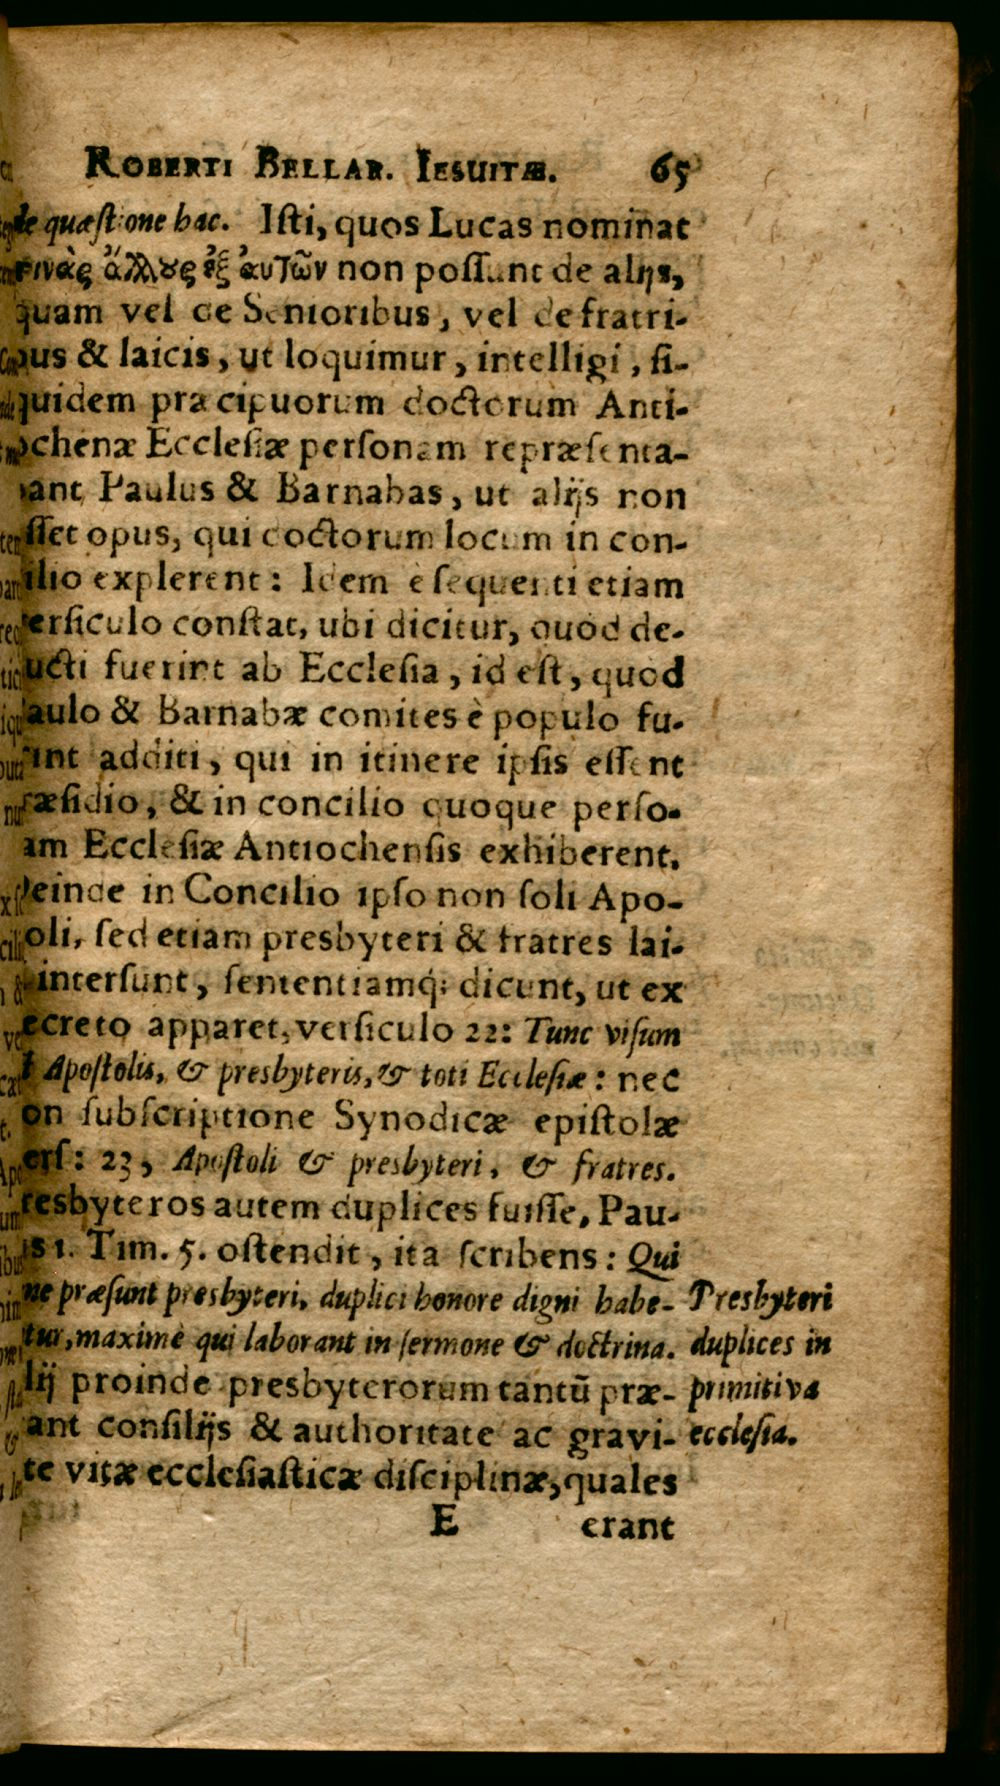 ROBERTI BELLAR. IESUITÆ. 65
de quæstione hac. Isti, quos Lucas nominat
τινὰς ἄλλους ἐξ ἀυτῶν non possunt de alijs,
quam vel de Senioribus, vel de fratri-
bus & laicis, ut loquimur, intelligi, si-
quidem præcipuorum doctorum Anti-
ochenæ Ecclesiæ personam repræsenta-
ant Paulus & Barnabas, ut alijs non
sset opus, qui doctorum locum in con-
ilio explerent: Idem è sequenti etiam
ersiculo constat, ubi dicitur, quod de-
ucti fuerint ab Ecclesia, id est, quod
aulo & Barnabæ comites è populo fu-
int additi, qui in itinere ipsis essent
ræsidio, & in concilio quoque perso-
am Ecclesiæ Antiochensis exhiberent.
einde in Concilio ipso non soli Apo-
oli, sed etiam presbyteri & fratres lai-
intersunt, sententiamq; dicunt, ut ex
ecreto apparet, versiculo 22: Tunc visum
t Apostolis, & presbyteris, & toti Ecclesiæ: nec
on subscriptione Synodicæ epistolæ
ers: 23, Apostoli & presbyteri, & fratres.
resbyteros autem duplices fuisse, Pau-
is 1. Tim. 5. ostendit, ita scribens: Qui
ne præsunt presbyteri, duplici honore digni habe-
tur, maximè qui laborant in sermone & doctrina.
lij proinde presbyterorum tantũ præ-
ant consilijs & authoritate ac gravi-
te vitæ ecclesiasticæ disciplinæ, quales
E erant
Presbyteri
duplices in
primitiva
ecclesia.